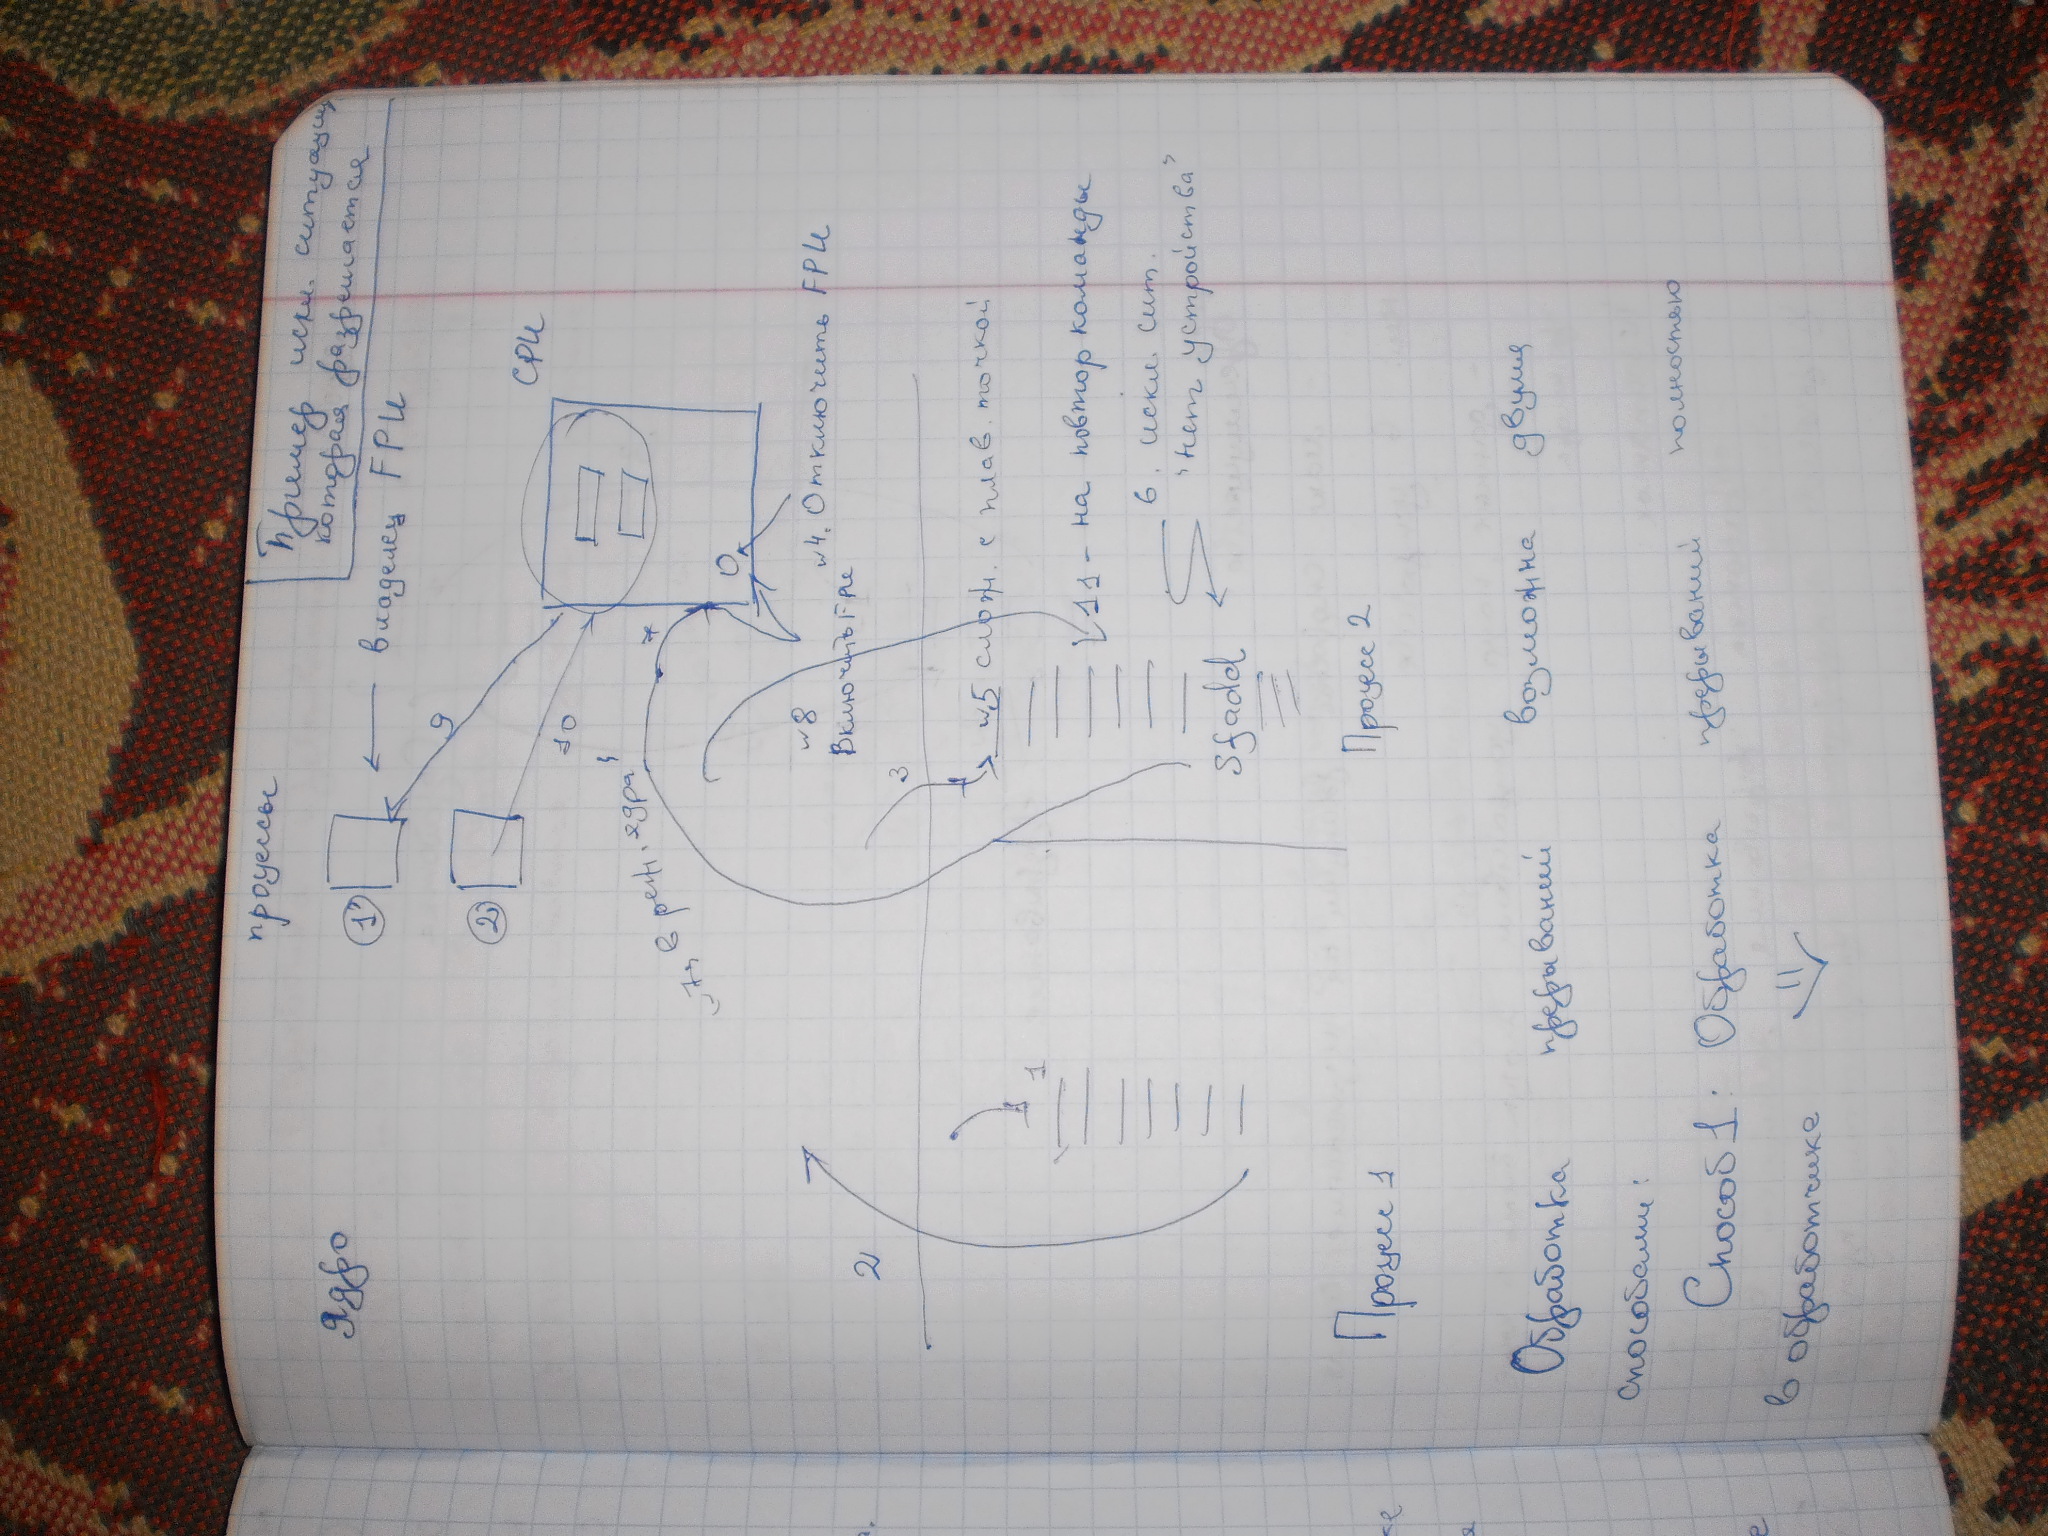 Пример искл. ситуации,
которая разрешается
процессы
Ядро
← владелец FPU
1)
CPU
2)
9
10
7
"7н в реж. ядра"
0
"8
Включить FPU
"4. Отключить FPU
2)
3
"5 слож. с плав. точкой
1
11 - на повтор команды
6. искл. сит.
"нет устройства"
Sfadd
Процесс 1
Процесс 2
Обработка прерываний возможна двумя
способами:
Способ 1: Обработка прерываний полностью
в обработчике